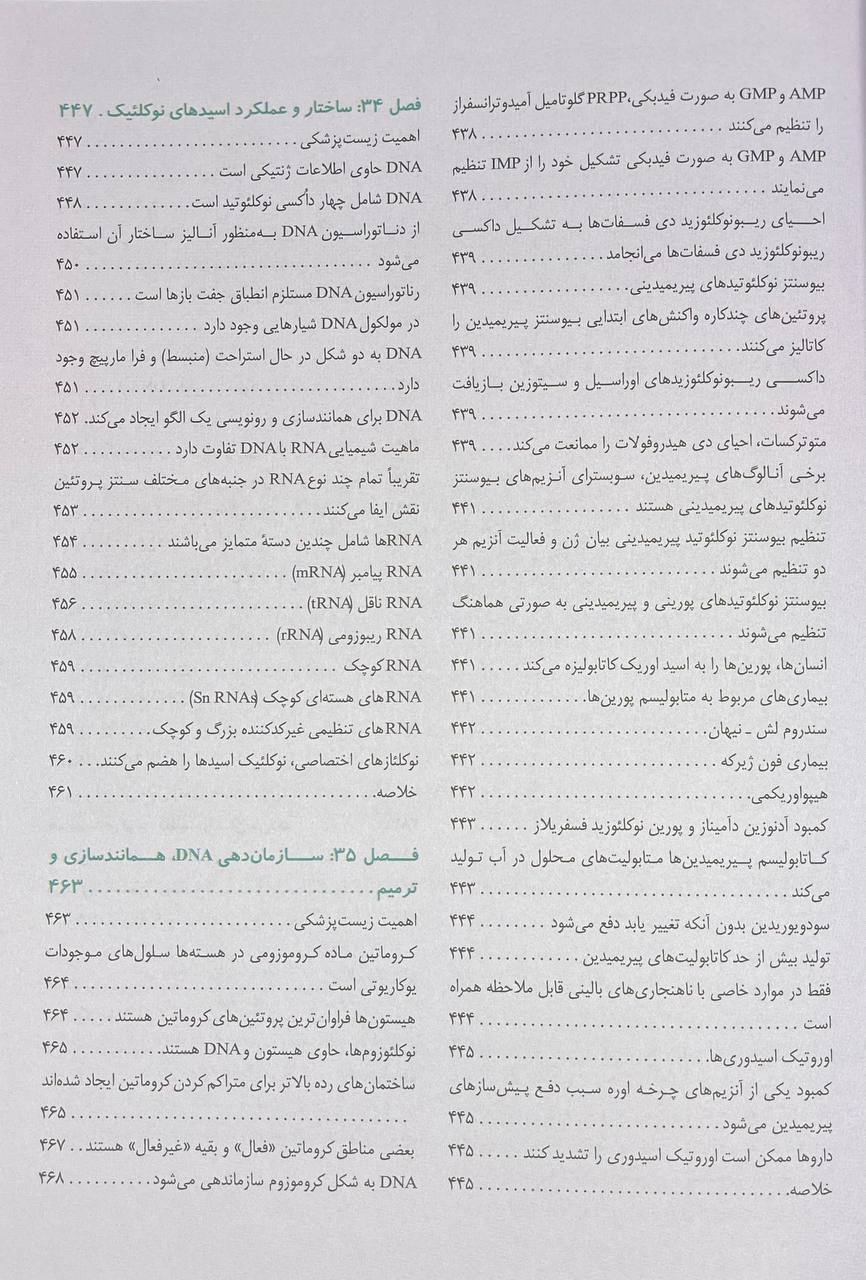 AMP و GMP به صورت فیدبکی، PRPP گلوتامیل آمیدوترانسفراز
را تنظیم می‌کنند . . . . . . . . . . . . . . . . . . . . . . . . . . ۴۳۸
AMP و GMP به صورت فیدبکی تشکیل خود را از IMP تنظیم
می‌نمایند . . . . . . . . . . . . . . . . . . . . . . . . . . ۴۳۸
احیای ریبونوکلئوزید دی فسفات‌ها به تشکیل داکسی
ریبونوکلئوزید دی فسفات‌ها می‌انجامد . . . . . . . . . . . . . . . ۴۳۹
بیوسنتز نوکلئوتیدهای پیریمیدینی . . . . . . . . . . . . . . . . . ۴۳۹
پروتئین‌های چندکاره واکنش‌های ابتدایی بیوسنتز پیریمیدین را
کاتالیز می‌کنند . . . . . . . . . . . . . . . . . . . . . . . . . . ۴۳۹
داکسی ریبونوکلئوزیدهای اوراسیل و سیتوزین بازیافت
می‌شوند . . . . . . . . . . . . . . . . . . . . . . . . . . ۴۳۹
متوترکسات، احیای دی هیدروفولات را ممانعت می‌کند . . . . ۴۳۹
برخی آنالوگ‌های پیریمیدین، سوبسترای آنزیم‌های بیوسنتز
نوکلئوتیدهای پیریمیدینی هستند . . . . . . . . . . . . . . . . . ۴۴۱
تنظیم بیوسنتز نوکلئوتید پیریمیدینی بیان ژن و فعالیت آنزیم هر
دو تنظیم می‌شوند . . . . . . . . . . . . . . . . . . . . . . . . ۴۴۱
بیوسنتز نوکلئوتیدهای پورینی و پیریمیدینی به صورتی هماهنگ
تنظیم می‌شوند . . . . . . . . . . . . . . . . . . . . . . . . . . ۴۴۱
انسان‌ها، پورین‌ها را به اسید اوریک کاتابولیزه می‌کند . . . . . ۴۴۱
بیماری‌های مربوط به متابولیسم پورین‌ها . . . . . . . . . . . . . ۴۴۱
سندروم لش ـ نیهان . . . . . . . . . . . . . . . . . . . . . . . . . . ۴۴۲
بیماری فون ژیرکه . . . . . . . . . . . . . . . . . . . . . . . . . . ۴۴۲
هیپواوریکمی . . . . . . . . . . . . . . . . . . . . . . . . . . ۴۴۲
کمبود آدنوزین دآمیناز و پورین نوکلئوزید فسفریلاز . . . . . . ۴۴۳
کاتابولیسم پیریمیدین‌ها متابولیت‌های محلول در آب تولید
می‌کند . . . . . . . . . . . . . . . . . . . . . . . . . . ۴۴۳
سودویوریدین بدون آنکه تغییر یابد دفع می‌شود . . . . . . . . ۴۴۴
تولید بیش از حد کاتابولیت‌های پیریمیدین . . . . . . . . . . . . ۴۴۴
فقط در موارد خاصی با ناهنجاری‌های بالینی قابل ملاحظه همراه
است . . . . . . . . . . . . . . . . . . . . . . . . . . ۴۴۴
اوروتیک اسیدوری‌ها . . . . . . . . . . . . . . . . . . . . . . . . . . ۴۴۵
کمبود یکی از آنزیم‌های چرخه اوره سبب دفع پیش‌سازهای
پیریمیدین می‌شود . . . . . . . . . . . . . . . . . . . . . . . . . . ۴۴۵
داروها ممکن است اوروتیک اسیدوری را تشدید کنند . . . . . ۴۴۵
خلاصه . . . . . . . . . . . . . . . . . . . . . . . . . . ۴۴۵
فصل ۳۴: ساختار و عملکرد اسیدهای نوکلئیک . ۴۴۷
اهمیت زیست‌پزشکی . . . . . . . . . . . . . . . . . . . . . . . . . . ۴۴۷
DNA حاوی اطلاعات ژنتیکی است . . . . . . . . . . . . . . . . ۴۴۷
DNA شامل چهار دأکسی نوکلئوتید است . . . . . . . . . . . . . ۴۴۸
از دناتوراسیون DNA به‌منظور آنالیز ساختار آن استفاده
می‌شود . . . . . . . . . . . . . . . . . . . . . . . . . . ۴۵۰
رناتوراسیون DNA مستلزم انطباق جفت بازها است . . . . . . ۴۵۱
در مولکول DNA شیارهایی وجود دارد . . . . . . . . . . . . . . ۴۵۱
DNA به دو شکل در حال استراحت (منبسط) و فرا مارپیچ وجود
دارد . . . . . . . . . . . . . . . . . . . . . . . . . . ۴۵۱
DNA برای همانندسازی و رونویسی یک الگو ایجاد می‌کند. ۴۵۲
ماهیت شیمیایی RNA با DNA تفاوت دارد . . . . . . . . . . . ۴۵۲
تقریباً تمام چند نوع RNA در جنبه‌های مختلف سنتز پروتئین
نقش ایفا می‌کنند . . . . . . . . . . . . . . . . . . . . . . . . . . ۴۵۳
RNAها شامل چندین دستهٔ متمایز می‌باشند . . . . . . . . . . ۴۵۴
RNA پیامبر (mRNA) . . . . . . . . . . . . . . . . . . . . . . . . ۴۵۵
RNA ناقل (tRNA) . . . . . . . . . . . . . . . . . . . . . . . . . . ۴۵۶
RNA ریبوزومی (rRNA) . . . . . . . . . . . . . . . . . . . . . . . ۴۵۸
RNA کوچک . . . . . . . . . . . . . . . . . . . . . . . . . . ۴۵۹
RNAهای هسته‌ای کوچک (Sn RNAs) . . . . . . . . . . . . . ۴۵۹
RNAهای تنظیمی غیرکدکننده بزرگ و کوچک . . . . . . . . . ۴۵۹
نوکلئازهای اختصاصی، نوکلئیک اسیدها را هضم می‌کنند . . . ۴۶۰
خلاصه . . . . . . . . . . . . . . . . . . . . . . . . . . ۴۶۱
فصل ۳۵: سازمان‌دهی DNA، همانندسازی و
ترمیم . . . . . . . . . . . . . . . . . . . . . . . . . . ۴۶۳
اهمیت زیست‌پزشکی . . . . . . . . . . . . . . . . . . . . . . . . . . ۴۶۳
کروماتین ماده کروموزومی در هسته‌ها سلول‌های موجودات
یوکاریوتی است . . . . . . . . . . . . . . . . . . . . . . . . . . ۴۶۴
هیستون‌ها فراوان‌ترین پروتئین‌های کروماتین هستند . . . . . ۴۶۴
نوکلئوزوم‌ها، حاوی هیستون و DNA هستند . . . . . . . . . . . . ۴۶۵
ساختمان‌های رده بالاتر برای متراکم کردن کروماتین ایجاد شده‌اند
. . . . . . . . . . . . . . . . . . . . . . . . . . ۴۶۵
بعضی مناطق کروماتین «فعال» و بقیه «غیرفعال» هستند . . ۴۶۷
DNA به شکل کروموزوم سازماندهی می‌شود . . . . . . . . . . ۴۶۸